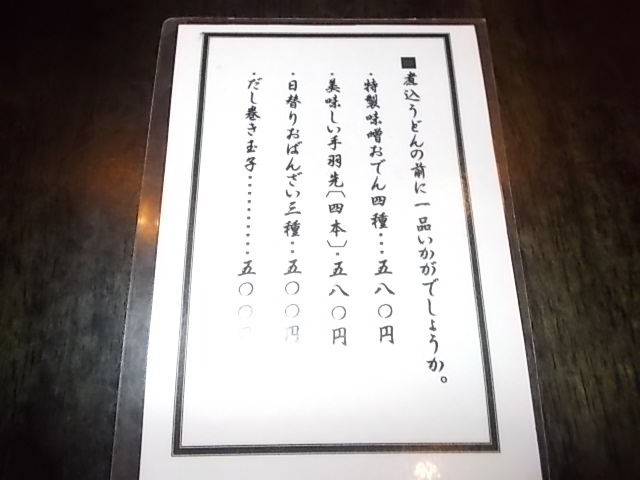 ■煮込うどんの前に一品いかがでしょうか。
・特製味噌おでん四種・・・五八〇円
・美味しい手羽先〔四本〕・五八〇円
・日替りおばんざい三種・・・五〇〇円
・だし巻き玉子・・・・・・・・・・五〇〇円